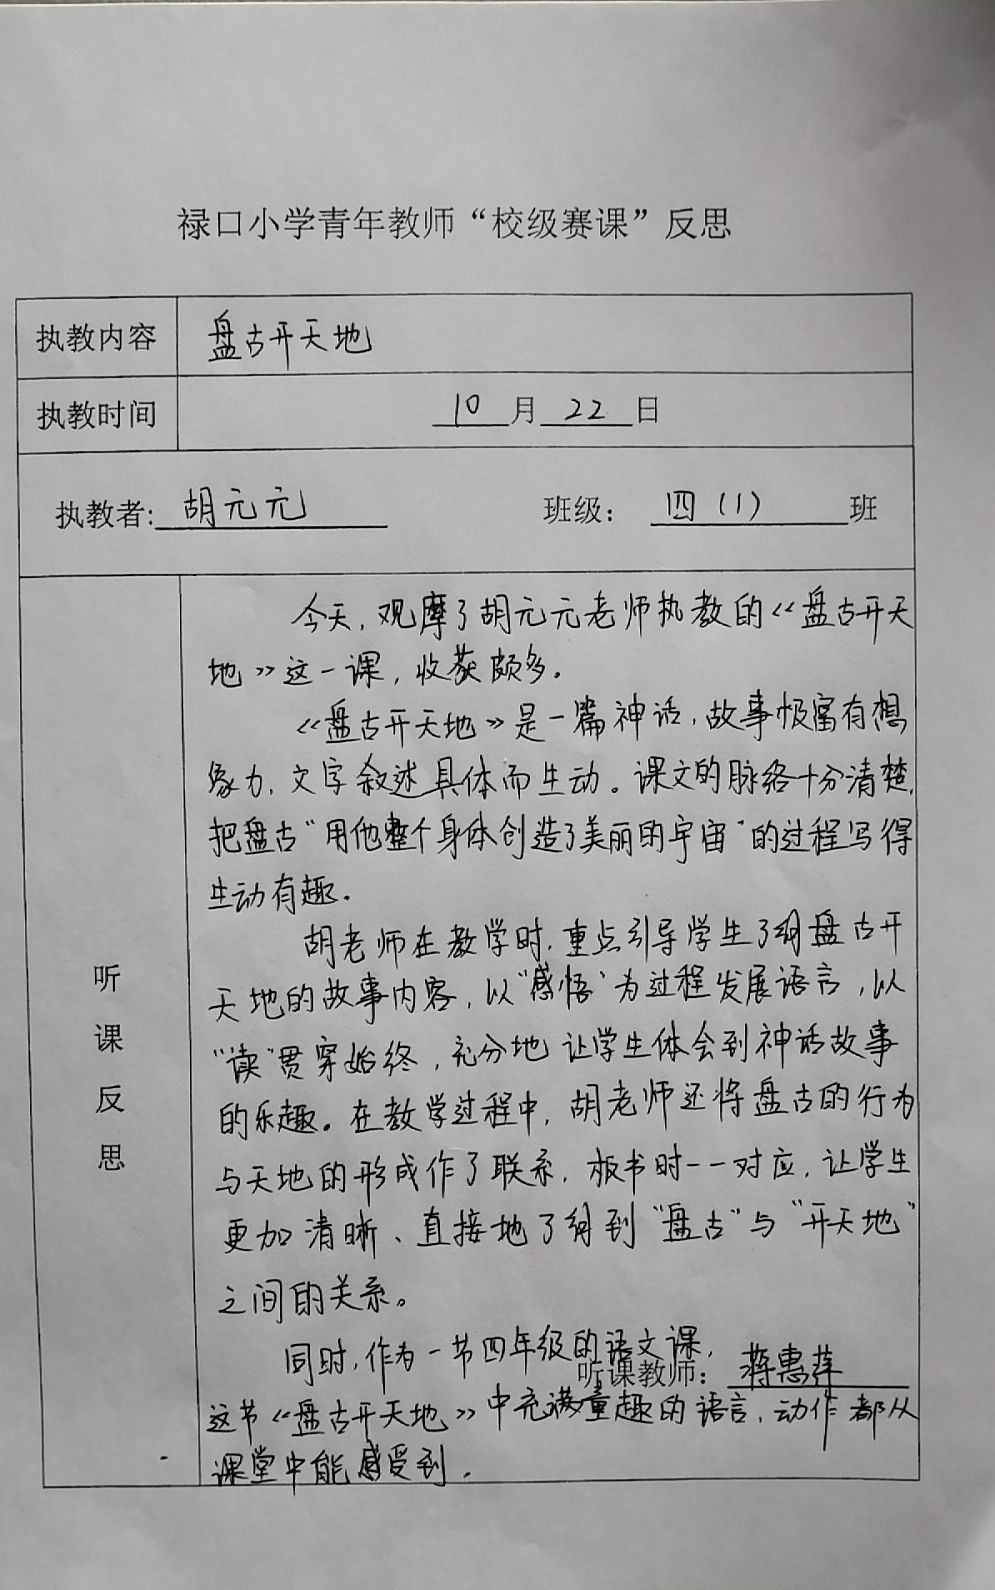 禄口小学青年教师“校级赛课”反思
执教内容 盘古开天地
执教时间 10月22日
执教者: 胡元元 班级： 四（1）班
听课反思
今天，观摩了胡元元老师执教的《盘古开天
地》这一课，收获颇多。
《盘古开天地》是一篇神话，故事极富有想
象力，文字叙述具体而生动。课文的脉络十分清楚，
把盘古“用他整个身体创造了美丽的宇宙”的过程写得
生动有趣。
胡老师在教学时，重点引导学生了解盘古开
天地的故事内容，以“感悟”为过程发展语言，以
“读”贯穿始终，充分地让学生体会到神话故事
的乐趣。在教学过程中，胡老师还将盘古的行为
与天地的形成作了联系，板书时一一对应，让学生
更加清晰、直接地了解到“盘古”与“开天地”
之间的关系。
同时，作为一节四年级的语文课，
听课教师： 蒋惠萍
这节《盘古开天地》中充满童趣的语言，动作都从
课堂中能感受到。